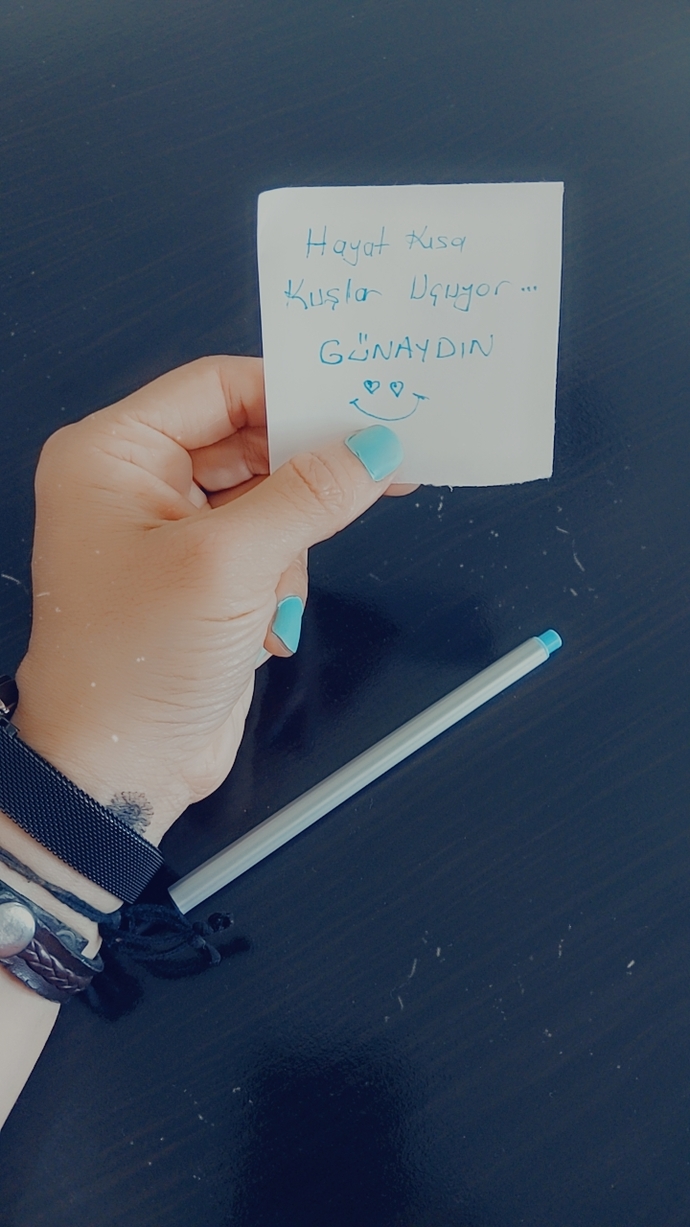 Hayat Kısa
Kuşlar Uçuyor...
GÜNAYDIN